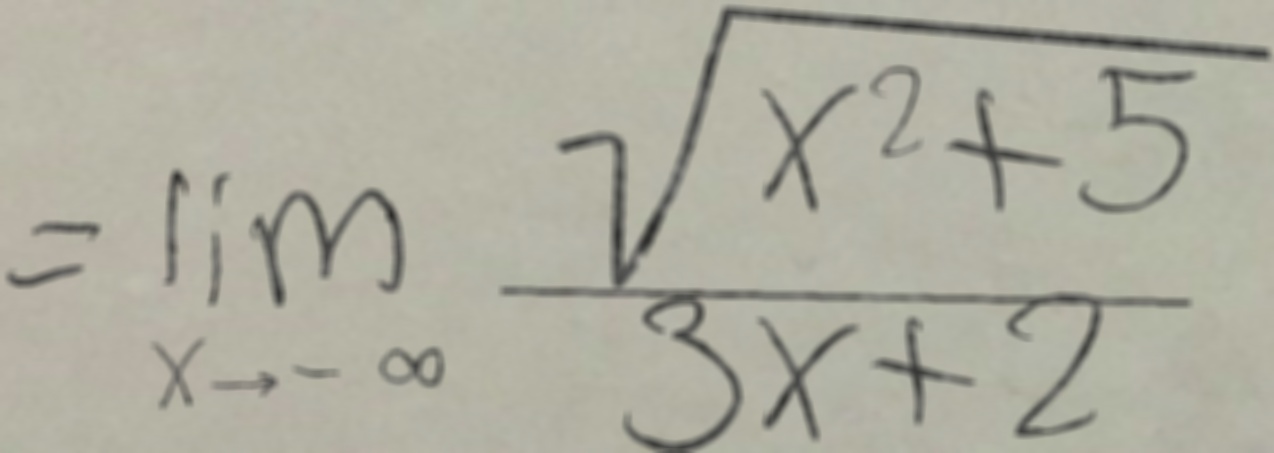 = lim x→-∞ √(x²+5) / (3x+2)